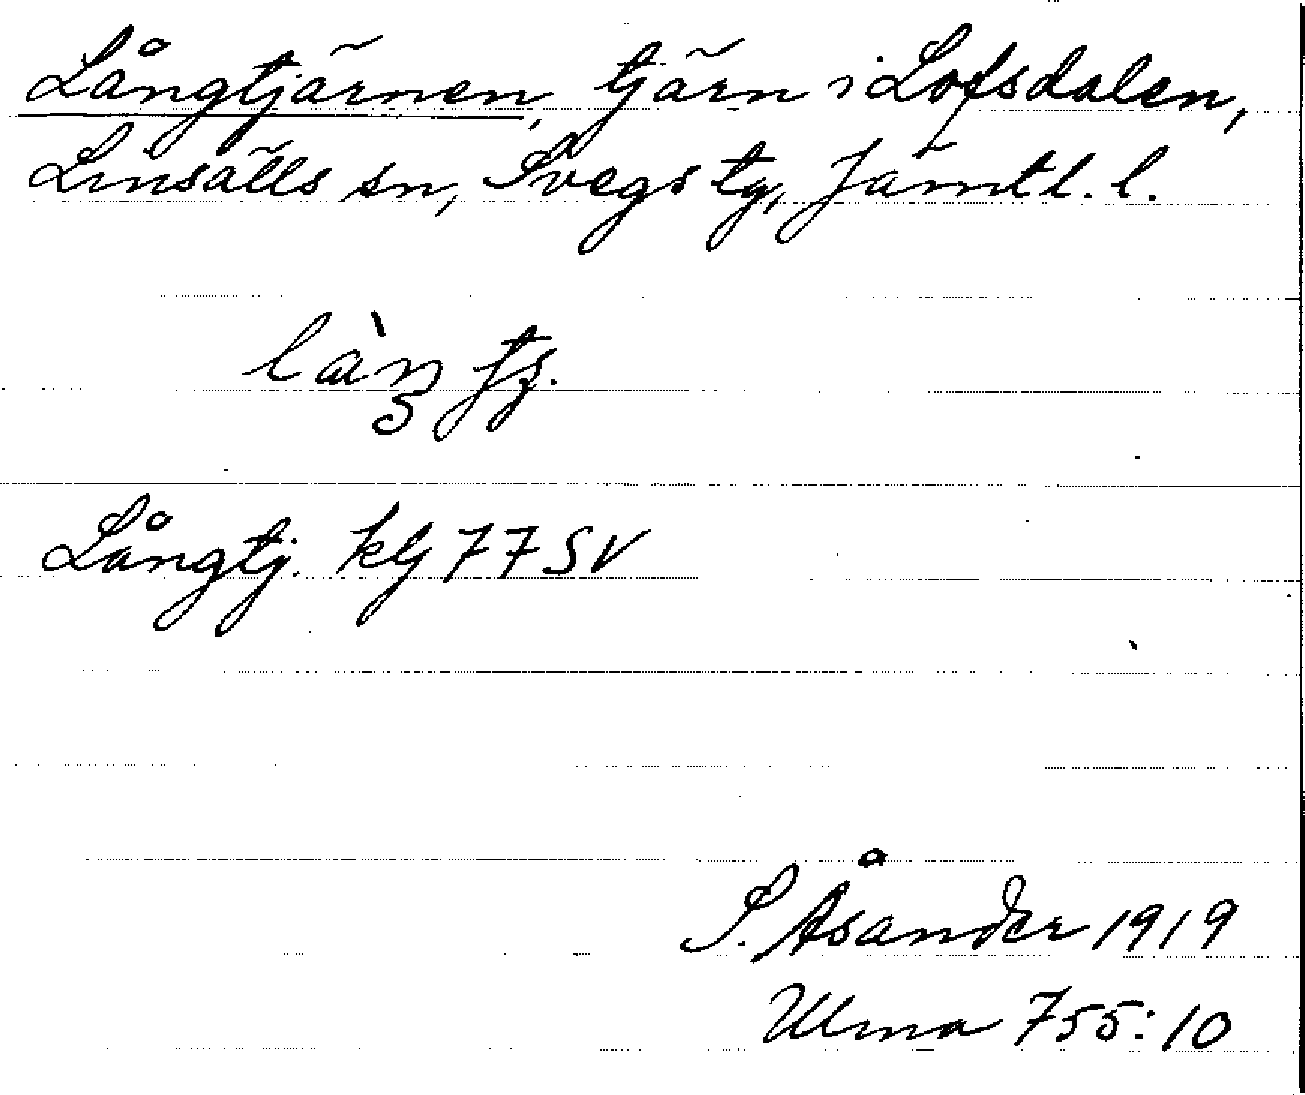 Långtjärnen, tjärn i Lofsdalen,
Linsälls sn, Svegs tg, Jämtl. l.
Långtj. kbj 77 SV
S. Åsander 1919
Ulma 755:10